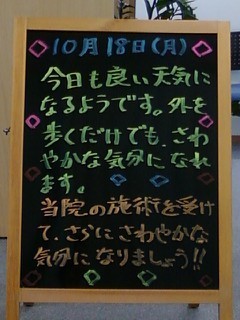 10月18日(月)
今日も良い天気に
なるようです。外を
歩くだけでも、さわ
やかな気分になれ
ます。
当院の施術を受け
て、さらにさわやかな
気分になりましょう!!